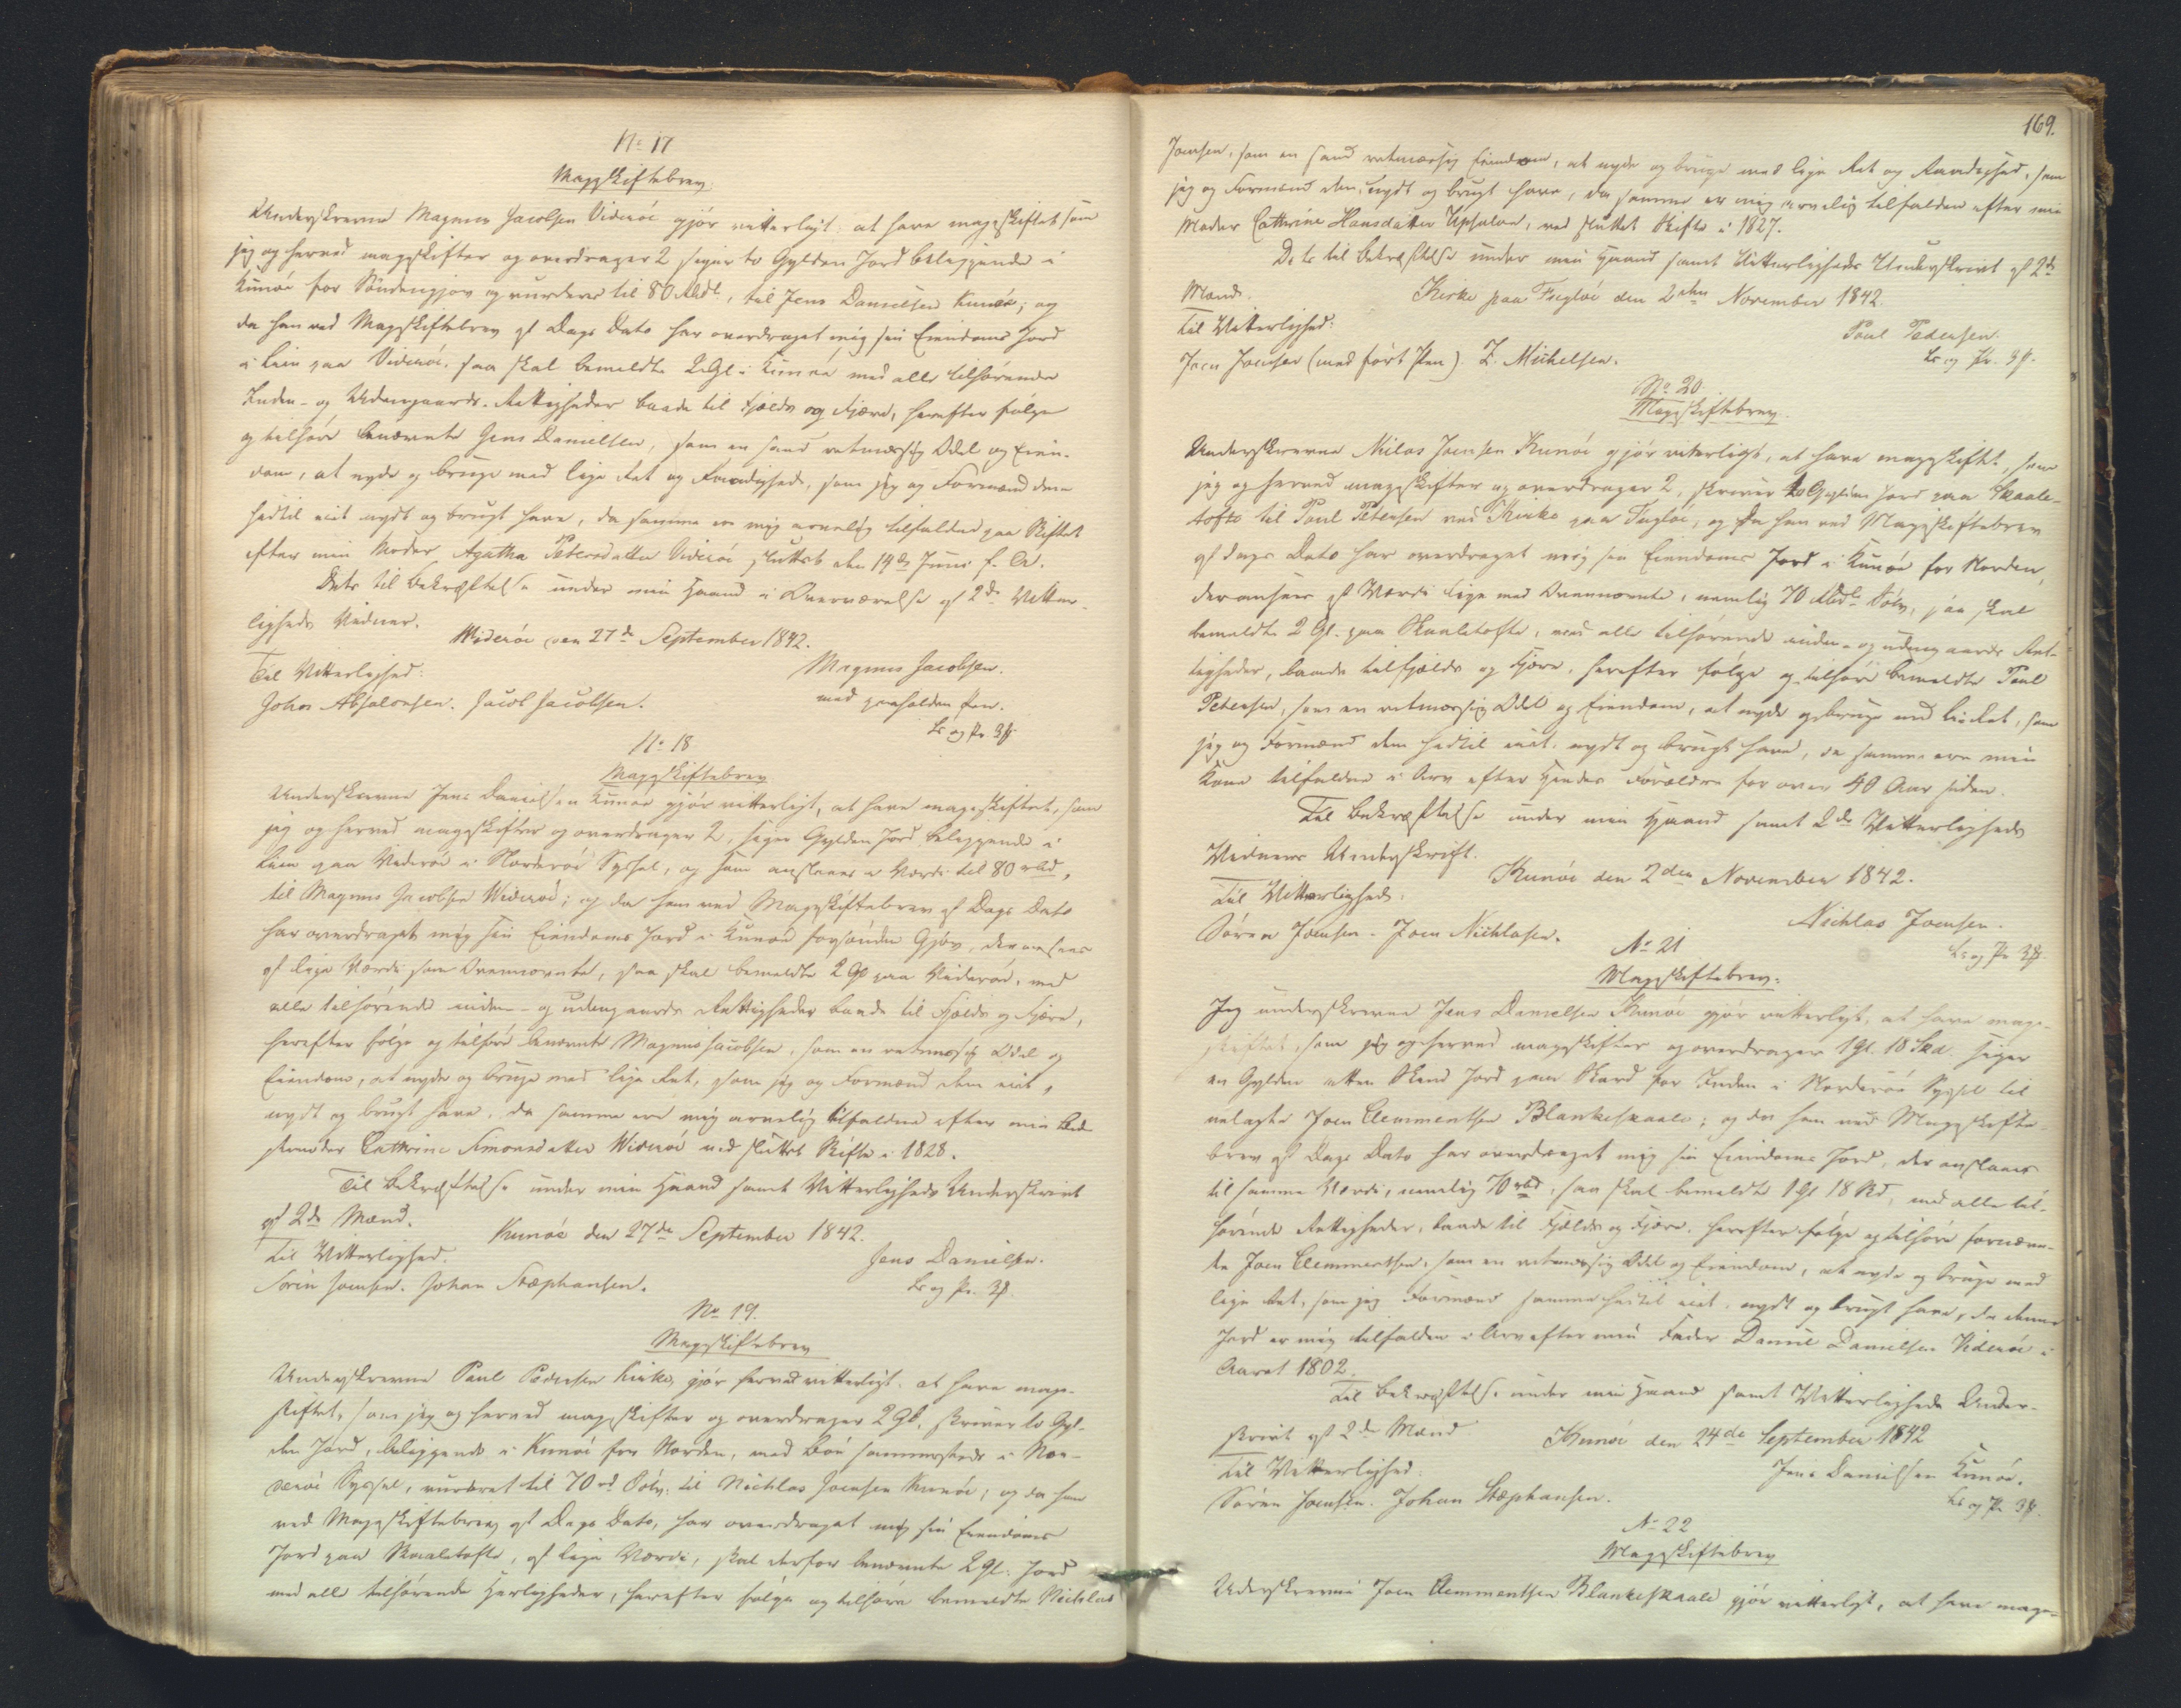 No 17
Mageskiftebrev.
Underskrevne Magnus Jacobsen Viderøe gjør vitterligt: at have mageskiftet som
jeg og herved mageskifter og overdrager 2 siger to Gylden Jord beliggende i
Kunøe for Søndengjov og vurderet til 80 Rbdl, til Jens Danielsen Kunøe; og
da han ved Mageskiftebrev af Dags Dato har overdraget mig sin Eiendoms Jord
i Qvin paa Viderøe, saa skal bemeldte 2 Gl. i Kunøe med alle tilhørende
Inden- og Udengaards-Rettigheder baade til Fjelds og Fjære, herefter følge
og tilhøre benævnte Jens Danielsen, som en sand retmæssig Odel og Eien-
dom, at nyde og bruge med lige Ret og Frændighed, som jeg og Formænd dem
hidtil eiet nydt og brugt have, da samme er mig arvelig tilfalden paa Skiftet
efter min Moder Agatha Petersdatter Viderøe sluttet den 14de Juni f. A.
Dets til Bekræftelse under min Haand i Overværelse af 2de Vitter-
ligheds Vidner.
Widerøe den 27de September 1842.
Til Vitterlighed:
Magnus Jacobsen.
Johan Absalonsen. Jacob Jacobsen.
med paaholden Pen.
Ls og Pr. 3ß
No 18
Mageskiftebrev
Underskrevne Jens Danielsen Kunøe gjør vitterligt, at have mageskiftet, som
jeg og herved mageskifter og overdrager 2, siger Gylden Jord beliggende i
Qvin paa Viderøe i Norderøe Syssel, og som ansees i Værdi til 80 rbd,
til Magnus Jacobsen Widerøe; og da han ved Mageskiftebrev af Dags Dato
har overdraget mig sin Eiendoms Jord i Kunøe for Sønden Gjov, der ansees
af lige Værdi som Ovennævnte, saa skal bemeldte 2 Gl paa Viderøe, med
alle tilhørende inden- og udengaards Rettigheder baade til Fjelds og Fjære,
herefter følge og tilhøre benævnte Magnus Jacobsen, som en retmæssig Odel og
Eiendom, at nyde og bruge med lige Ret, som jeg og Formænd dem eiet,
nydt og brugt have, da samme ere mig arvelig tilfaldne efter min Bed-
stemoder Cathrine Simonsdatter Widerøe ved sluttet Skifte i 1828.
Til Bekræftelse under min Haand samt Vitterligheds Underskrivt
af 2de Mænd.
Kunøe den 27de September 1842.
Til Vitterlighed.
Jens Danielsen.
Sørin Joensen. Johan Stæphansen.
Ls og Pr. 3ß.
No 19.
Mageskiftebrev
Underskrevne Poul Pedersen Kirke, gjør herved vitterligt, at have mage-
skiftet, som jeg og herved mageskifter og overdrager 2 Gl, skriver to Gyl-
den Jord, beliggende i Kunøe for Norden, med Bøn sammesteds i Nor-
derøe Syssel, vurderet til 70 rd Sølv, til Nichlas Joensen Kunøe; og da han
ved Mageskiftebrev af Dags Dato, har overdraget mig sin Eiendoms
Jord paa Skaaletofte, af lige Værdi, skal derfor benævnte 2 Gl. Jord
med alle tilhørende Herligheder, herefter følge og tilhøre bemeldte Nichlas
169.
Joensen, som en sand retmæssig Eiendom, at nyde og bruge med lige Ret og Raadighed, som
jeg og Formænd dem nydt og brugt have, da samme er mig arvelig tilfalden efter min
Moder Cathrine Hansdatter Upsalen, ved sluttet Skifte i 1827.
Dets til Bekræftelse under min Haand samt Vitterligheds Underskrivt af 2de
Mænd.
Kirke paa Fugløe den 2den November 1842.
Til Vitterlighed:
Poul Pedersen.
Joen Joensen (med ført Pen). Z. Michelsen.
Ls og Pr. 3ß.
No 20.
Mageskiftebrev.
Underskrevne Niclas Joensen Kunøe gjør vitterligt, at have mageskiftet, som
jeg og herved mageskifter og overdrager 2, skriver to Gylden Jord paa Skaale-
tofte til Poul Petersen ved Kirke paa Fugløe, og da han ved Mageskiftebrev
af Dags Dato har overdraget mig sin Eiendoms Jord i Kunøe for Norden,
der ansees af Værdi lige med Ovennævnte, nemlig 70 Rbdl Sølv, saa skal
bemeldte 2 Gl. paa Skaaletofte, med alle tilhørende inden- og udengaards Ret-
tigheder, baade til Fjelds og Fjære, herefter følge og tilhøre bemeldte Poul
Petersen, som en retmæssig Odel og Eiendom, at nyde og bruge med lige Ret, som
jeg og Formænd dem hidtil eiet, nydt og brugt have, da samme ere min
Kone tilfaldne i Arv efter hendes Forældre for over 40 Aar siden.
Til Bekræftelse under min Haand samt 2de Vitterligheds
Vidners Underskrift.
Kunøe den 2den November 1842.
Til Vitterlighed.
Nichlas Joensen.
Søren Joensen. Joen Nichlasen.
Ls og Pr 3ß.
No 21
Mageskiftebrev.
Jeg underskrevne Jens Danielsen Kunøe gjør vitterligt, at have mage-
skiftet, som jeg og herved mageskifter og overdrager 1 Gl. 18 Skd. siger
en Gylden atten Skind Jord paa Skard for Inden i Norderøe Syssel til
velagte Joen Clemmentsen Blankeskaale; og da han ved Mageskifte-
brev af Dags Dato har overdraget mig sin Eiendoms Jord, der anslaaes
til samme Værdi, nemlig 70 rbd, saa skal bemeldte 1 Gl 18 Skd, med alle til-
hørende Rettigheder, baade til Fjelds og Fjære, herefter følge og tilhøre fornævn-
te Joen Clemmentsen, som en retmæssig Odel og Eiendom, at nyde og bruge med
lige Ret, som jeg Formænd samme hidtil eiet, nydt og brugt have, da denne
Jord er mig tilfalden i Arv efter min Fader Daniel Danielsen Viderøe i
Aaret 1802.
Til Bekræftelse under min Haand samt Vitterligheds Under-
skrivt af 2de Mænd
Kunøe den 24de September 1842
Til Vitterlighed.
Jens Danielsen Kunøe.
Søren Joensen. Johan Stæphansen.
Ls og Pr 3ß.
No 22
Mageskiftebrev
Underskrevne Joen Clemmentsen Blankeskaale gjør vitterligt, at have mage-